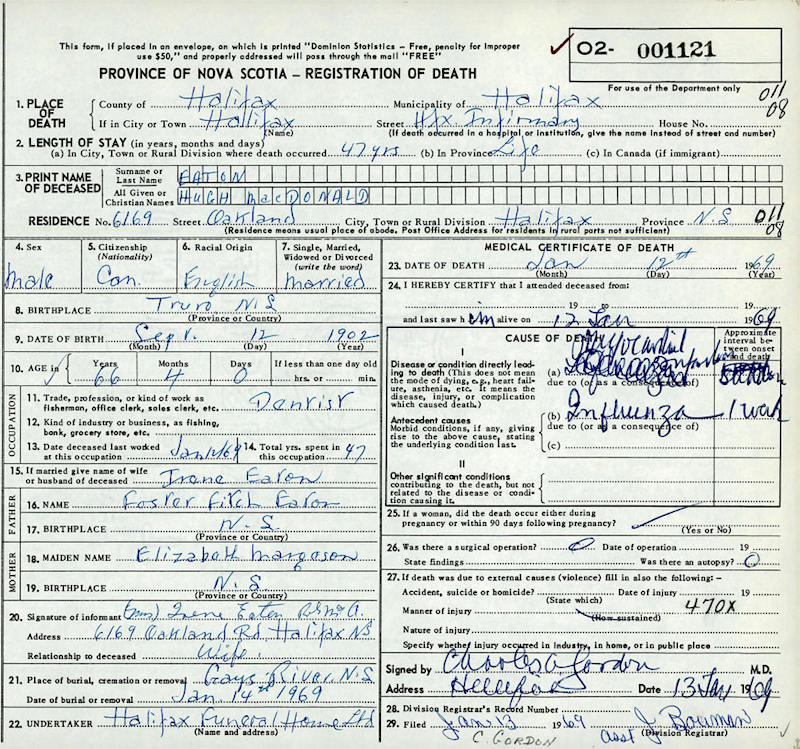 This form, if placed in an envelope, on which is printed "Dominion Statistics – Free, penalty for improper
use $50," and properly addressed will pass through the mail "FREE"
✓ 02- 001121
PROVINCE OF NOVA SCOTIA – REGISTRATION OF DEATH
For use of the Department only
1. PLACE OF DEATH County of Halifax Municipality of Halifax 011
If in City or Town Halifax Street Hfx. Infirmary House No. 08
(Name) (If death occurred in a hospital or institution, give the name instead of street and number)
2. LENGTH OF STAY (in years, months and days)
(a) In City, Town or Rural Division where death occurred 47 yrs (b) In Province Life (c) In Canada (if immigrant)
3. PRINT NAME OF DECEASED
Surname or Last Name EATON
All Given or Christian Names HUGH MacDONALD
RESIDENCE No. 6169 Street Oakland City, Town or Rural Division Halifax Province N.S. 011
(Residence means usual place of abode. Post Office Address for residents in rural parts not sufficient) 08
4. Sex
male
5. Citizenship
(Nationality)
Can.
6. Racial Origin
English
7. Single, Married,
Widowed or Divorced
(write the word)
married
8. BIRTHPLACE Truro N.S.
(Province or Country)
9. DATE OF BIRTH Sept. 12 1902
(Month) (Day) (Year)
10. AGE in ✓ Years Months Days If less than one day old
66 4 0 hrs. or min.
OCCUPATION
11. Trade, profession, or kind of work as
fisherman, office clerk, sales clerk, etc. Dentist
12. Kind of industry or business, as fishing,
bank, grocery store, etc.
13. Date deceased last worked
at this occupation 14. Total yrs. spent in
this occupation 47
15. If married give name of wife
or husband of deceased Irene Eaton
FATHER
16. NAME Foster Fitch Eaton
17. BIRTHPLACE N.S.
(Province or Country)
MOTHER
18. MAIDEN NAME Elizabeth Margason
19. BIRTHPLACE N.S.
(Province or Country)
20. Signature of informant (Mrs) Irene Eaton
Address 6169 Oakland Rd, Halifax N.S.
Relationship to deceased Wife.
21. Place of burial, cremation or removal Gays River, N.S.
Date of burial or removal Jan. 14th 1969
22. UNDERTAKER Halifax Funeral Home Ltd
(Name and address)
MEDICAL CERTIFICATE OF DEATH
23. DATE OF DEATH Jan 12th 1969
(Month) (Day) (Year)
24. I HEREBY CERTIFY that I attended deceased from:
19 to 19
and last saw him alive on 12 Jan 1969
CAUSE OF DEATH
Approximate
interval between
onset
and death
I
Disease or condition directly leading
to death (This does not mean
the mode of dying, e.g., heart failure,
asthenia, etc. It means the
disease, injury, or complication
which caused death.)
(a) Myocardial
due to (or as a consequence of)
Antecedent causes
Morbid conditions, if any, giving
rise to the above cause, stating
the underlying condition last.
(b) Influenza 1 week
due to (or as a consequence of)
(c)
II
Other significant conditions
contributing to the death, but not
related to the disease or condition
causing it.
25. If a woman, did the death occur either during
pregnancy or within 90 days following pregnancy?
(Yes or No)
26. Was there a surgical operation? 0 Date of operation 19
State findings Was there an autopsy? 0
27. If death was due to external causes (violence) fill in also the following: –
Accident, suicide or homicide? Date of injury 19
(State which)
Manner of injury 470X
(How sustained)
Nature of injury
Specify whether injury occurred in industry, in home, or in public place
Signed by Charles A Gordon M.D.
Address Halifax Date 13 Jan 1969
28. Division Registrar's Record Number
29. Filed Jan 13 1969 asst J. Bowman
(Division Registrar)
C. GORDON